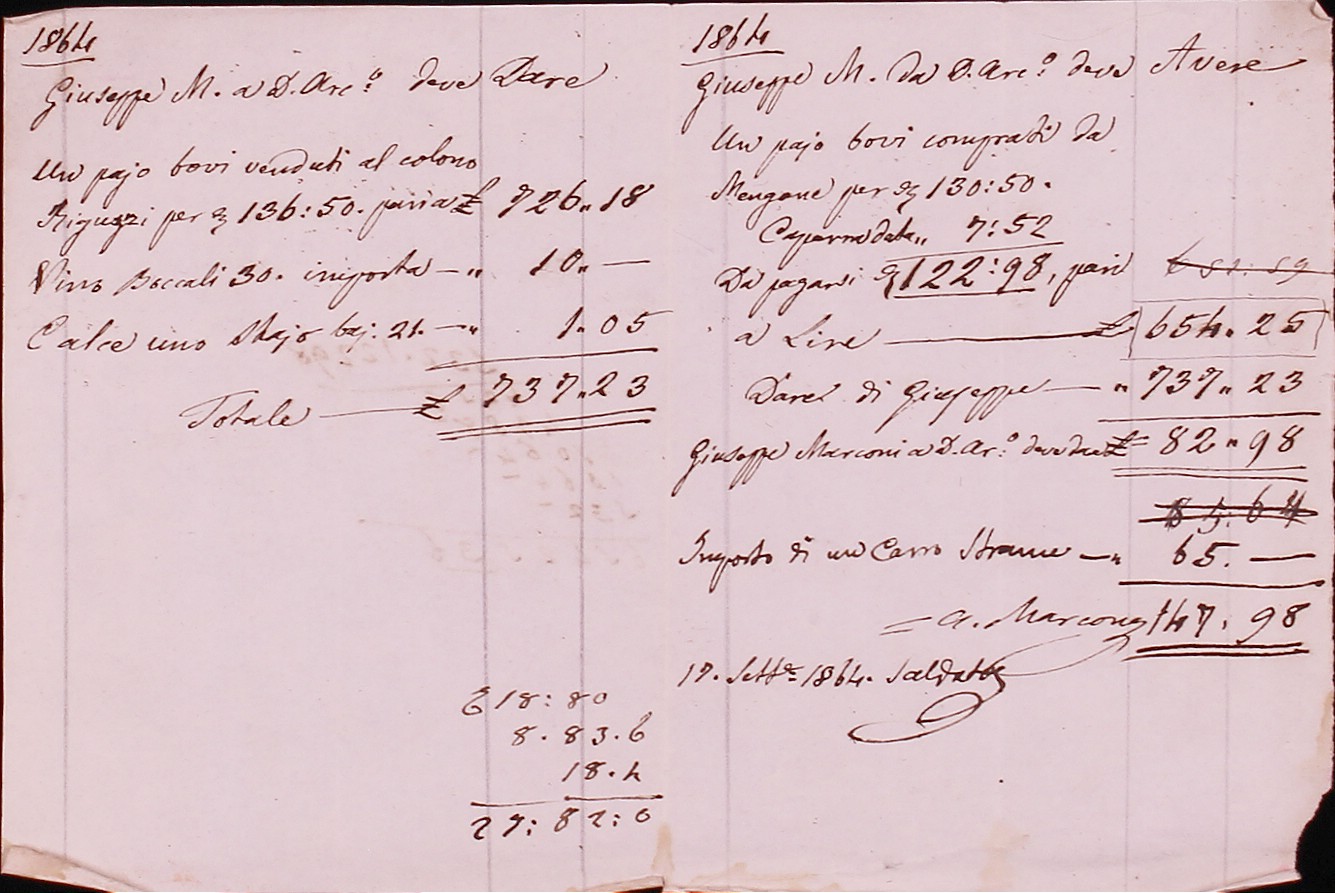 1864
Giuseppe M. a D. Arc.º deve Dare
Un pajo bovi venduti al colono
Riguzzi per 136:50. pari a £ 726.18
Vino Boccali 30. importa — " 10 " —
Calce uno Stajo baj: 21. — " 1.05
Totale — £ 737.23
18:80
8.83.6
18.4
27:82:0
1864
Giuseppe M. da D. Arc.º deve Avere
Un pajo bovi comprati da
Mengone per 130:50.
Caparra data " 7:52
Da pagarsi 122:98, pari
a Lire — £ 654.25
Dare di Giuseppe — " 737 " 23
Giuseppe Marconi a D. Ar.º deve dare £ 82 " 98
85.64
Importo di un Carro Strame — " 65. —
= A. Marconi 147.98
17. Sett.e 1864. Saldato